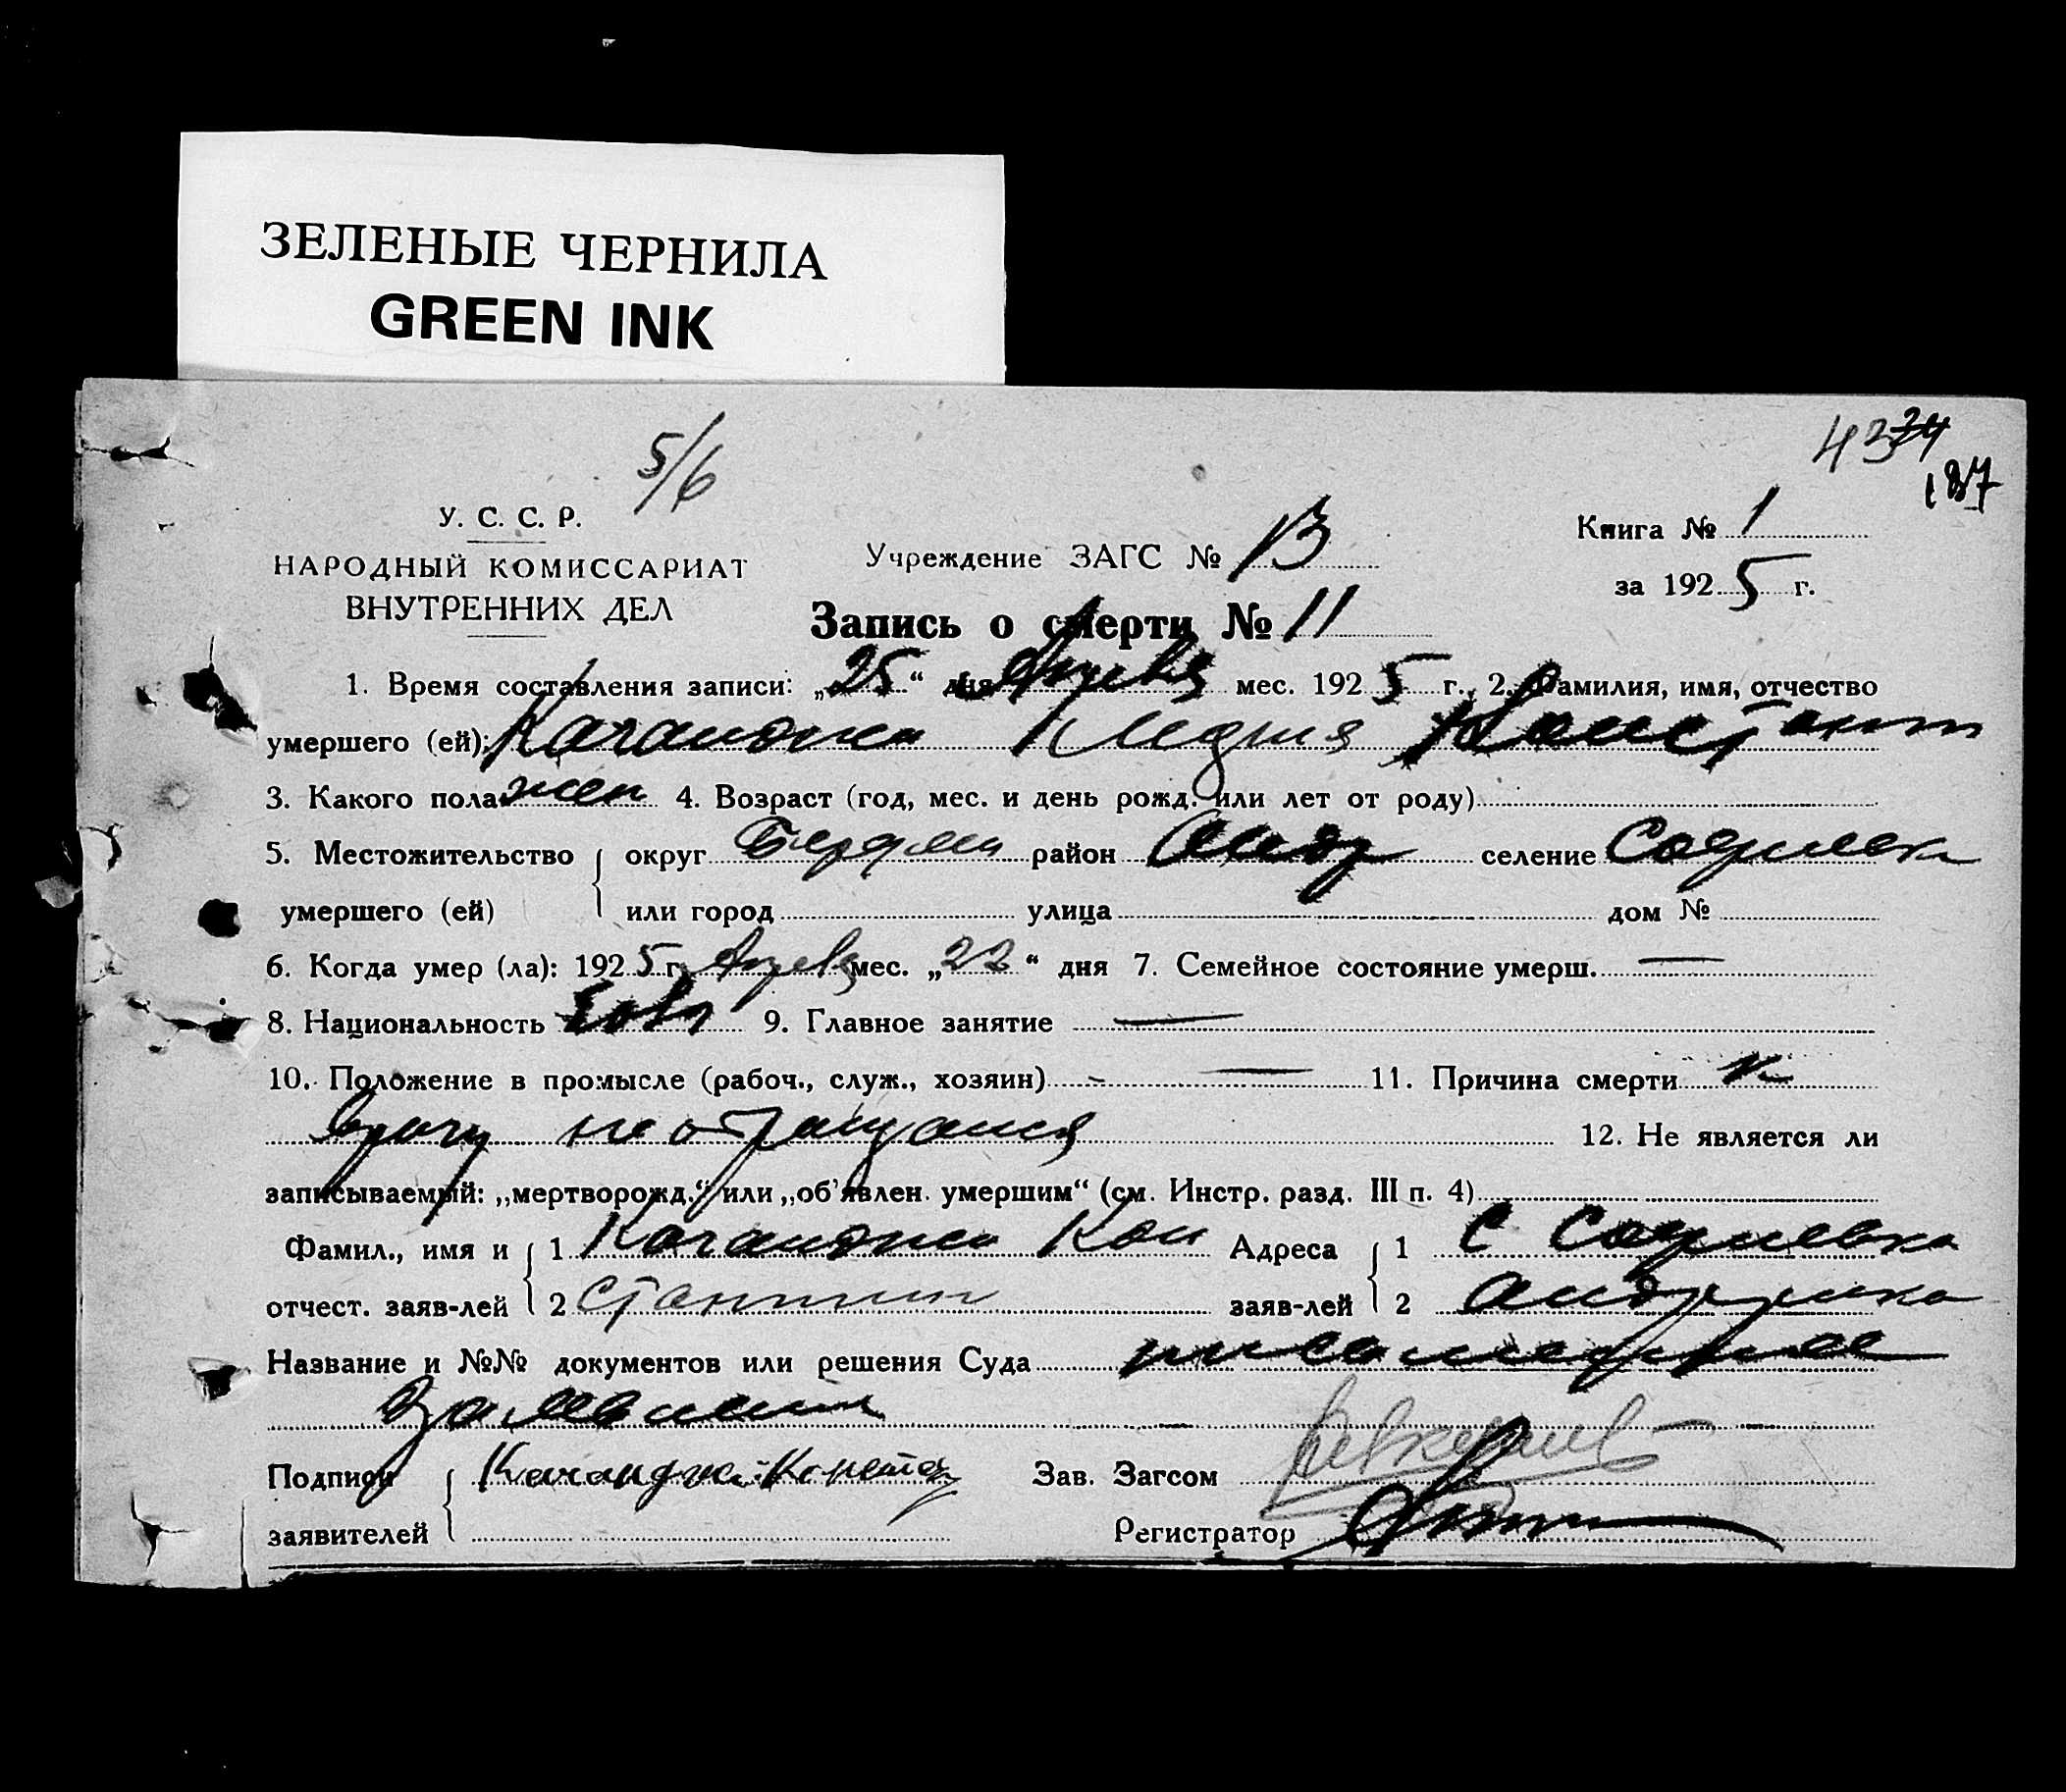 ЗЕЛЕНЫЕ ЧЕРНИЛА
GREEN INK
5/6
187
У. С. С. Р.
НАРОДНЫЙ КОМИССАРИАТ
ВНУТРЕННИХ ДЕЛ
Учреждение ЗАГС №
Книга № 1
за 1925 г.
Запись о смерти № 11
1. Время составления записи: „25“ дня мес. 1925 г. 2. Фамилия, имя, отчество
умершего (ей): Констант
3. Какого пола жен 4. Возраст (год, мес. и день рожд. или лет от роду)
5. Местожительство округ район Андр селение Софиевка
умершего (ей) или город улица дом №
6. Когда умер (ла): 1925 г. мес. „22“ дня 7. Семейное состояние умерш. —
8. Национальность 9. Главное занятие —
10. Положение в промысле (рабоч., служ., хозяин) - — 11. Причина смерти к
врачу не обращался
12. Не является ли
записываемый: „мертворожд.“ или „об'явлен. умершим“ (см. Инстр. разд. III п. 4)
Фамил., имя и 1 Кон Адреса 1 с Софиевка
отчест. заяв-лей 2 стантин заяв-лей 2
Название и №№ документов или решения Суда
заявления
Подписи Зав. Загсом
заявителей Регистратор